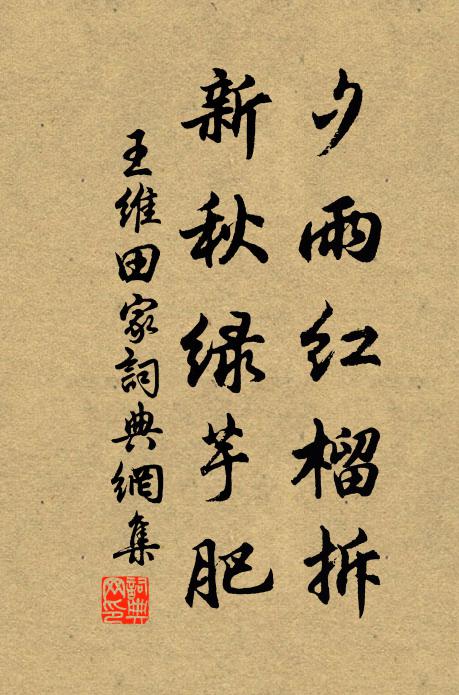 夕雨红榴拆
新秋绿芋肥
王维田家詞典網集
詞典网印